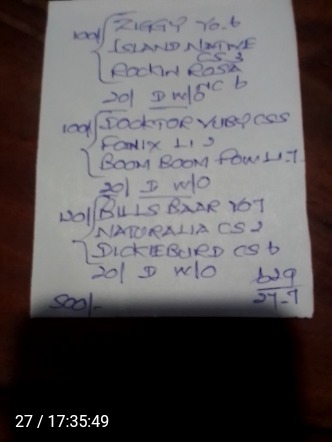 100/ ZIGGY Yo.6
ISLAND NATIVE
CS 2
ROCKIN ROSA
NC 6
20/ D W/O
100/ DOCKTOR VUBY CSS
FONIX LI 2
BOOM BOOM POW LI.7
20/ D W/O
120/ BILLS BAAR Yo7
NATURALIA CS 2
DICKIEBURD CS 6
20/ D W/O
629
500/- 27-7
27 / 17:35:49